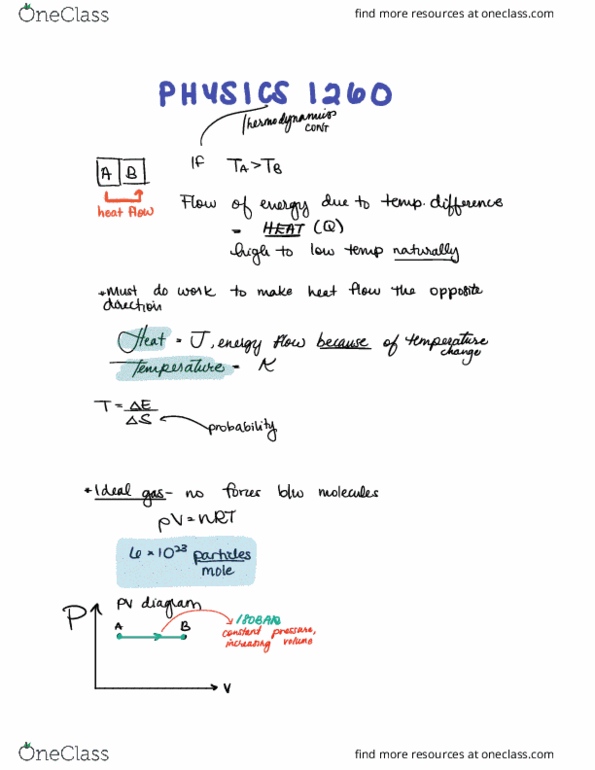 OneClass
find more resources at oneclass.com
PHYSICS 1260
Thermodynamics
CONT
A B
IF TA>TB
heat flow
Flow of energy due to temp. difference
= HEAT (Q)
high to low temp naturally
*Must do work to make heat flow the opposite
direction
Heat = J, energy flow because of temperature
change
Temperature = K
T = ΔE
ΔS
probability
*Ideal gas - no forces b/w molecules
pV = nRT
6 × 10²³ particles
mole
P
PV diagram
A B
ISOBARIC
constant pressure,
increasing volume
V
OneClass
find more resources at oneclass.com